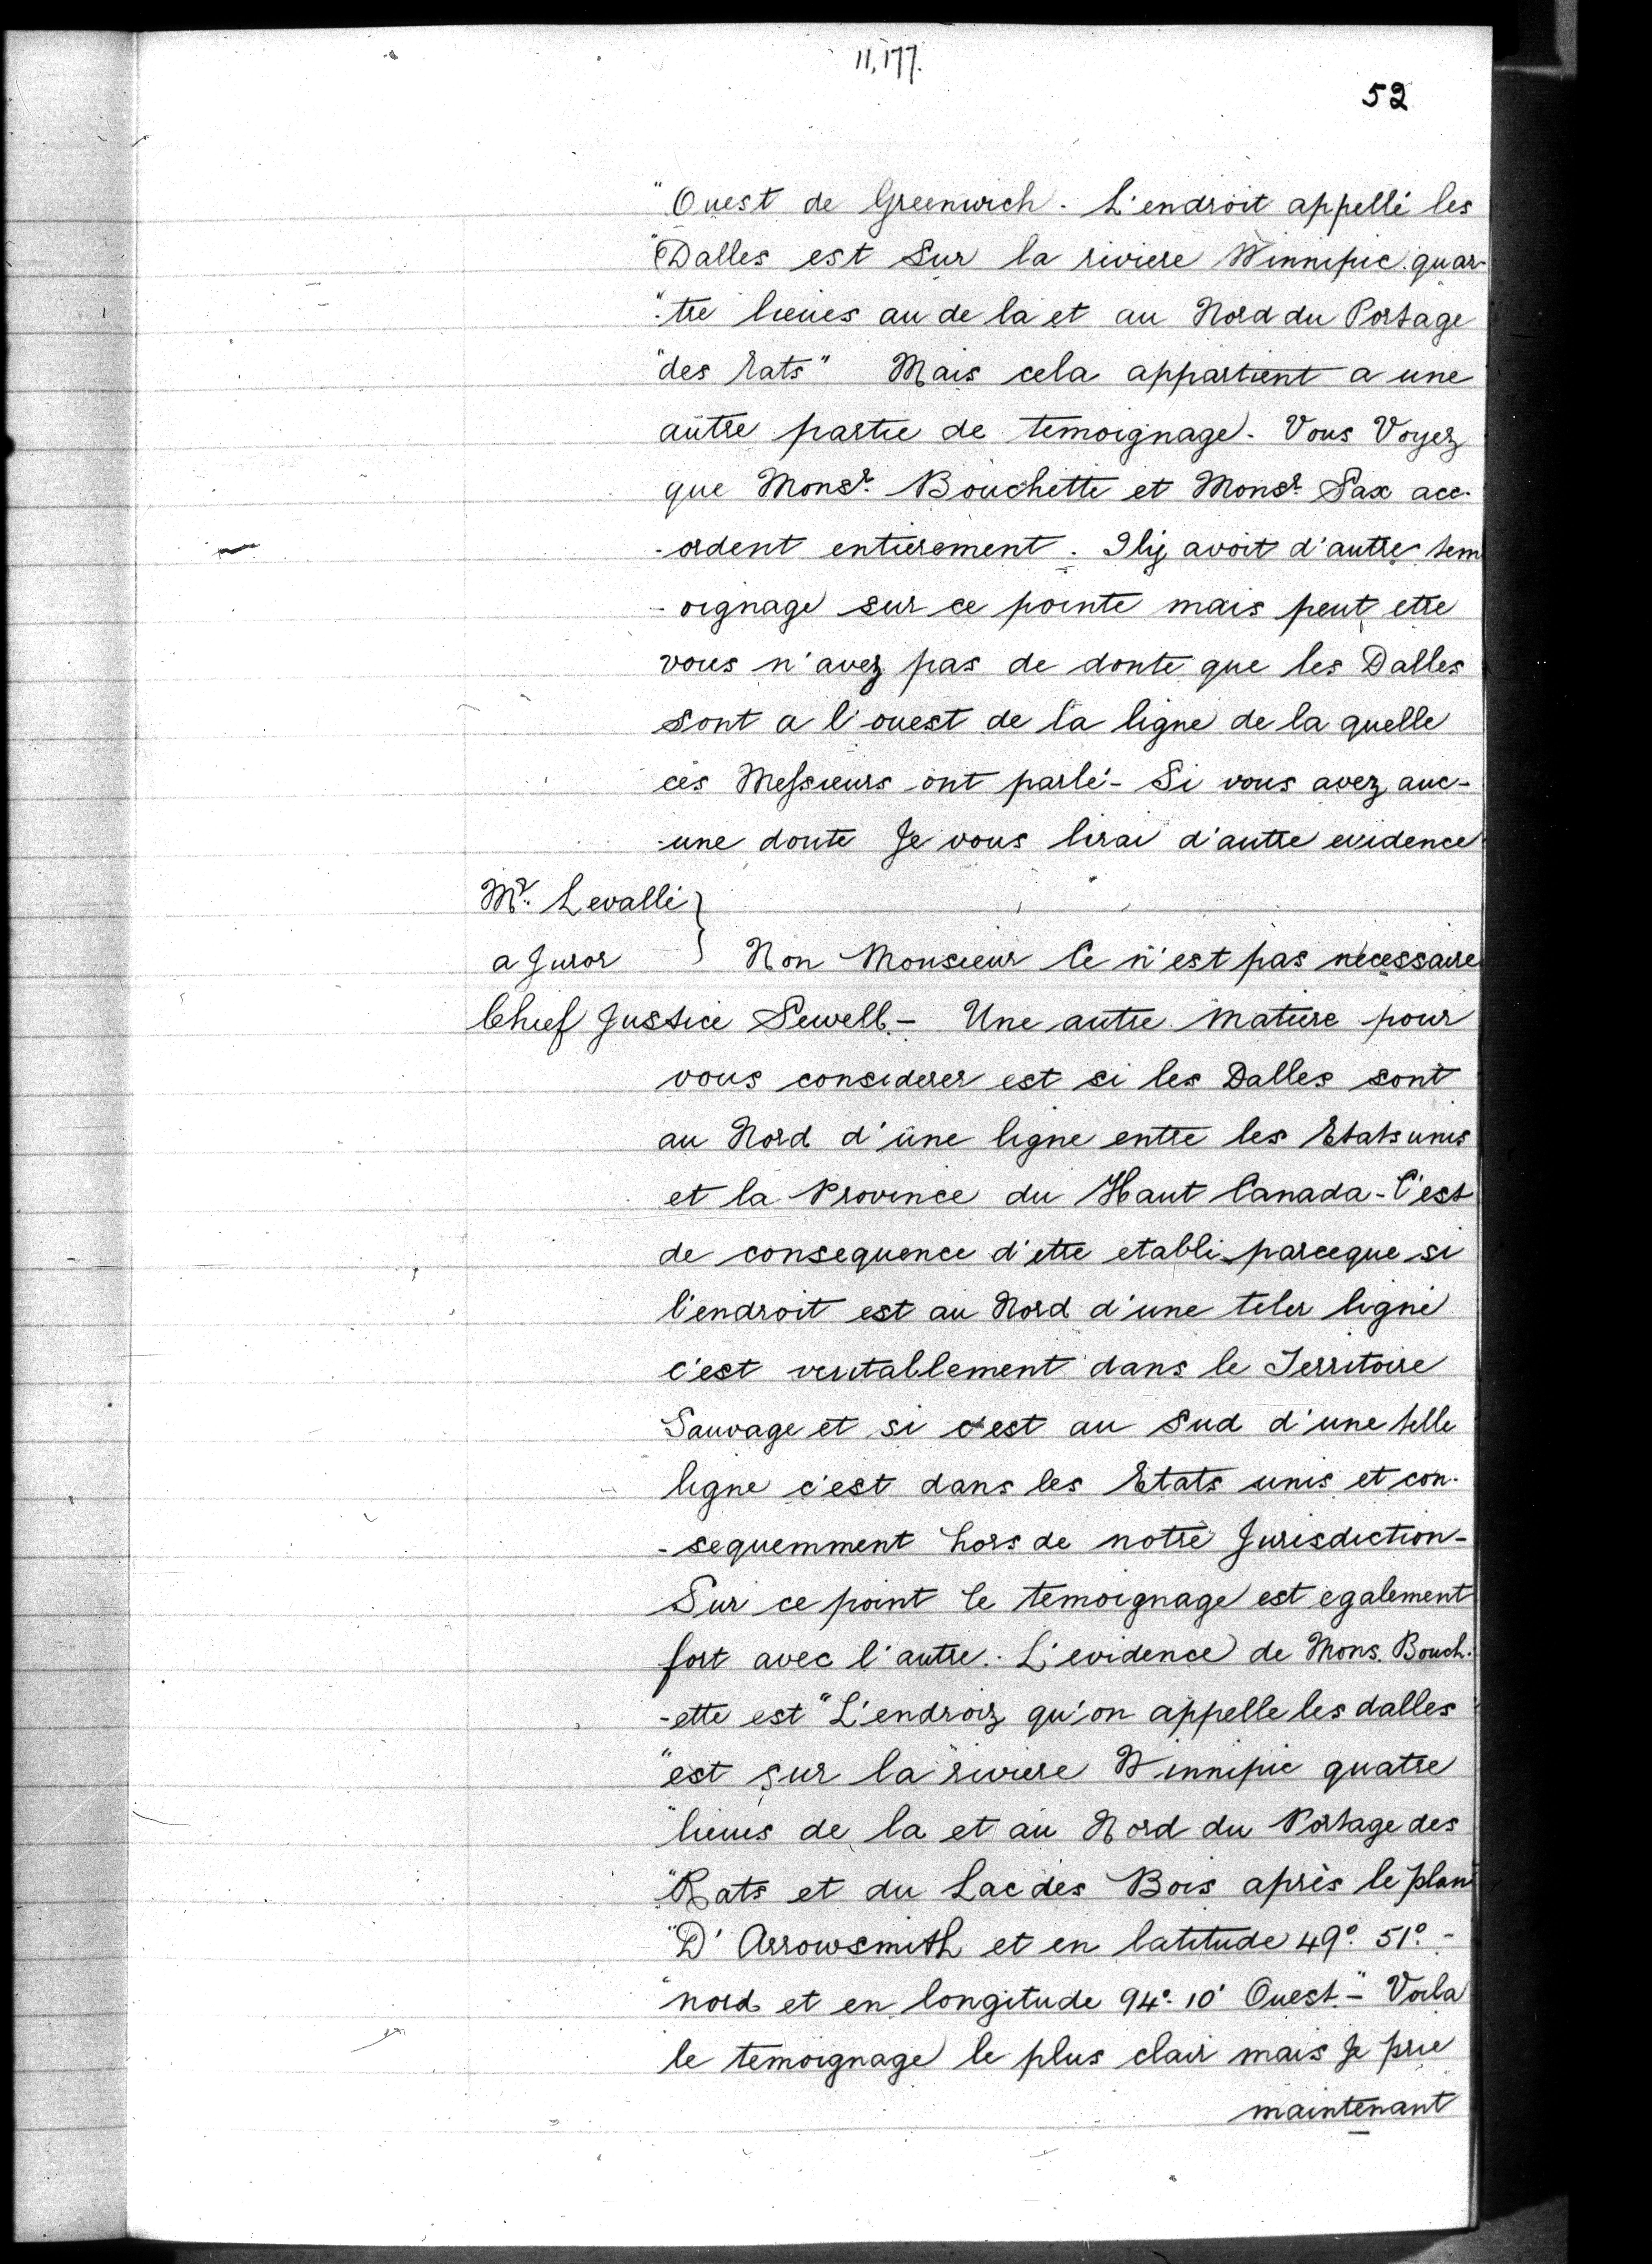 11,177.
52
"Ouest de Greenwich. L'endroit appellé les
"Dalles est sur la riviere Winnipic quar-
"-tre lieues au de la et au Nord du Portage
"des Rats" Mais cela appartient a une
autre partie de temoignage. Vous Voyez
que Monsr. Bouchette et Monsr. Sax acc-
-ordent entierement. Il y avoit d'autre tem
-oignage sur ce pointe mais peut etre
vous n'avez pas de doute que les Dalles
sont a l'ouest de la ligne de la quelle
ces Messieurs ont parlé - Si vous avez auc-
-une doute Je vous lirai d'autre evidence
Mr. Levallé }
a Juror } Non Monsieur Ce n'est pas necessaire
Chief Justice Sewell. - Une autre matiere pour
vous considerer est si les Dalles sont
au Nord d'une ligne entre les Etats unis
et la Province du Haut Canada - C'est
de consequence d'etre etabli parceque si
l'endroit est au Nord d'une teler ligne
c'est veritablement dans le Territoire
Sauvage et si c'est au Sud d'une telle
ligne c'est dans les Etats unis et con-
-sequemment hors de notre Jurisdiction -
Sur ce point le temoignage est egalement
fort avec l'autre. L'evidence de Mons. Bouch-
-ette est "L'endroiz qu'on appelle les dalles
"est sur la riviere Winnipic quatre
"lieues de la et au Nord du Portage des
"Rats et du Lac des Bois après le plan
"D'Arrowsmith et en latitude 49°. 51°. -
"nord et en longitude 94°. 10' Ouest." - Voila
le temoignage le plus clair mais Je prie
maintenant